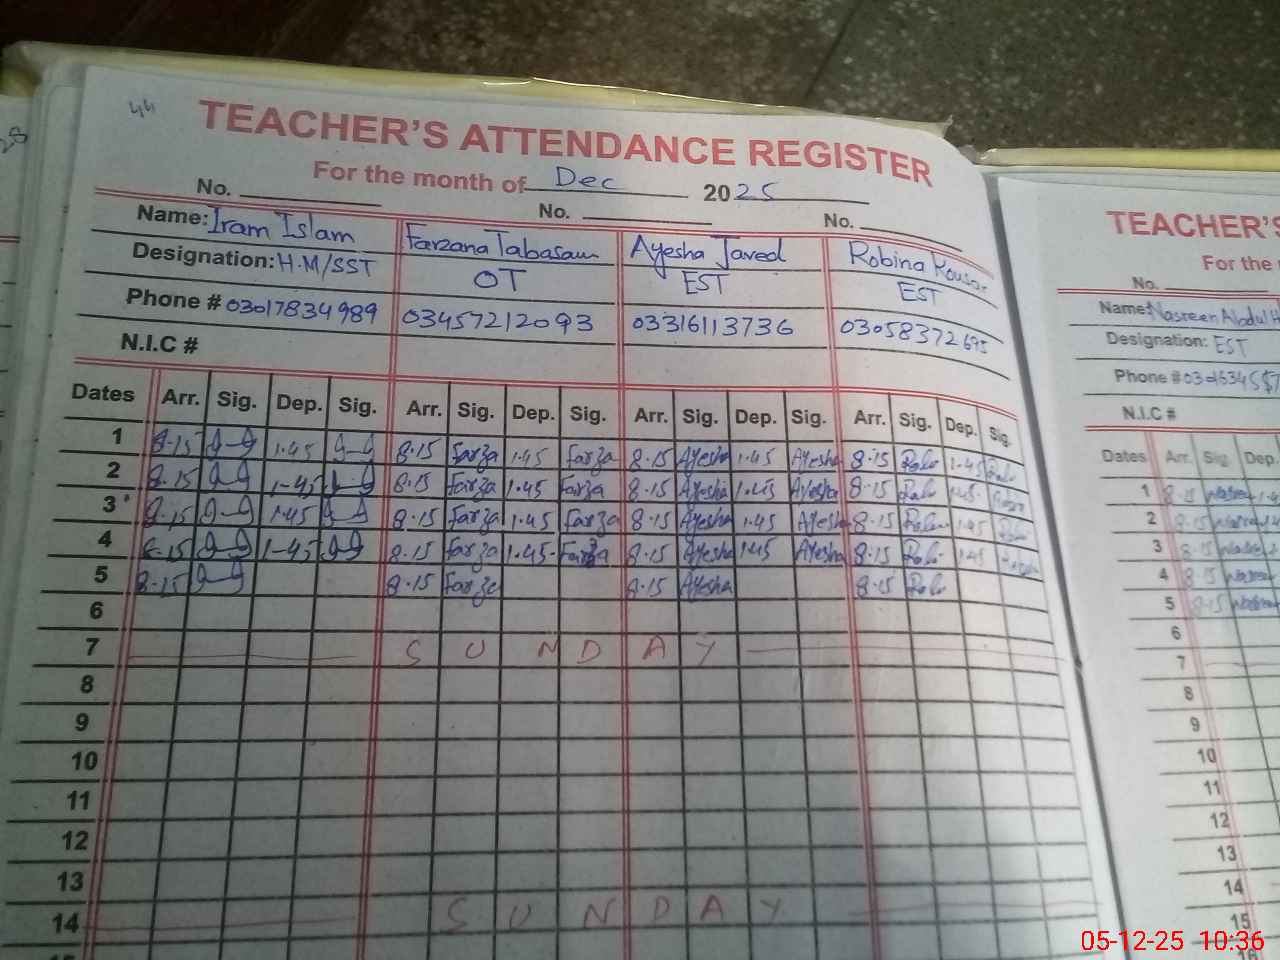 44
TEACHER'S ATTENDANCE REGISTER
For the month of Dec 2025
No. No. No.
Name: Iram Islam Farzana Tabasam Ayesha Javed Robina Kousar
Designation: H.M/SST OT EST EST
Phone # 03017834989 03457212093 03316113736 03058372695
N.I.C #
Dates Arr. Sig. Dep. Sig. Arr. Sig. Dep. Sig. Arr. Sig. Dep. Sig. Arr. Sig. Dep. Sig.
1 8.15 1.45 8.15 Farza 1.45 Farza 8.15 Ayesha 1.45 Ayesha 8.15 1.45
2 8.15 1.45 8.15 Farza 1.45 Farza 8.15 Ayesha 1.45 Ayesha 8.15 1.45
3 8.15 1.45 8.15 Farza 1.45 Farza 8.15 Ayesha 1.45 Ayesha 8.15 1.45
4 8.15 1.45 8.15 Farza 1.45 Farza 8.15 Ayesha 1.45 Ayesha 8.15 1.45
5 8.15 8.15 Farza 8.15 Ayesha 8.15
6
7 SUNDAY
8
9
10
11
12
13
14 SUNDAY
TEACHER'S
For the
No.
Name: Nasreen Abdul
Designation: EST
Phone #
N.I.C #
Dates Arr. Sig Dep.
1 8.15
2 8.15
3 8.15
4 8.15
5 8.15
6
7
8
9
10
11
12
13
14
15
16
05-12-25 10:36